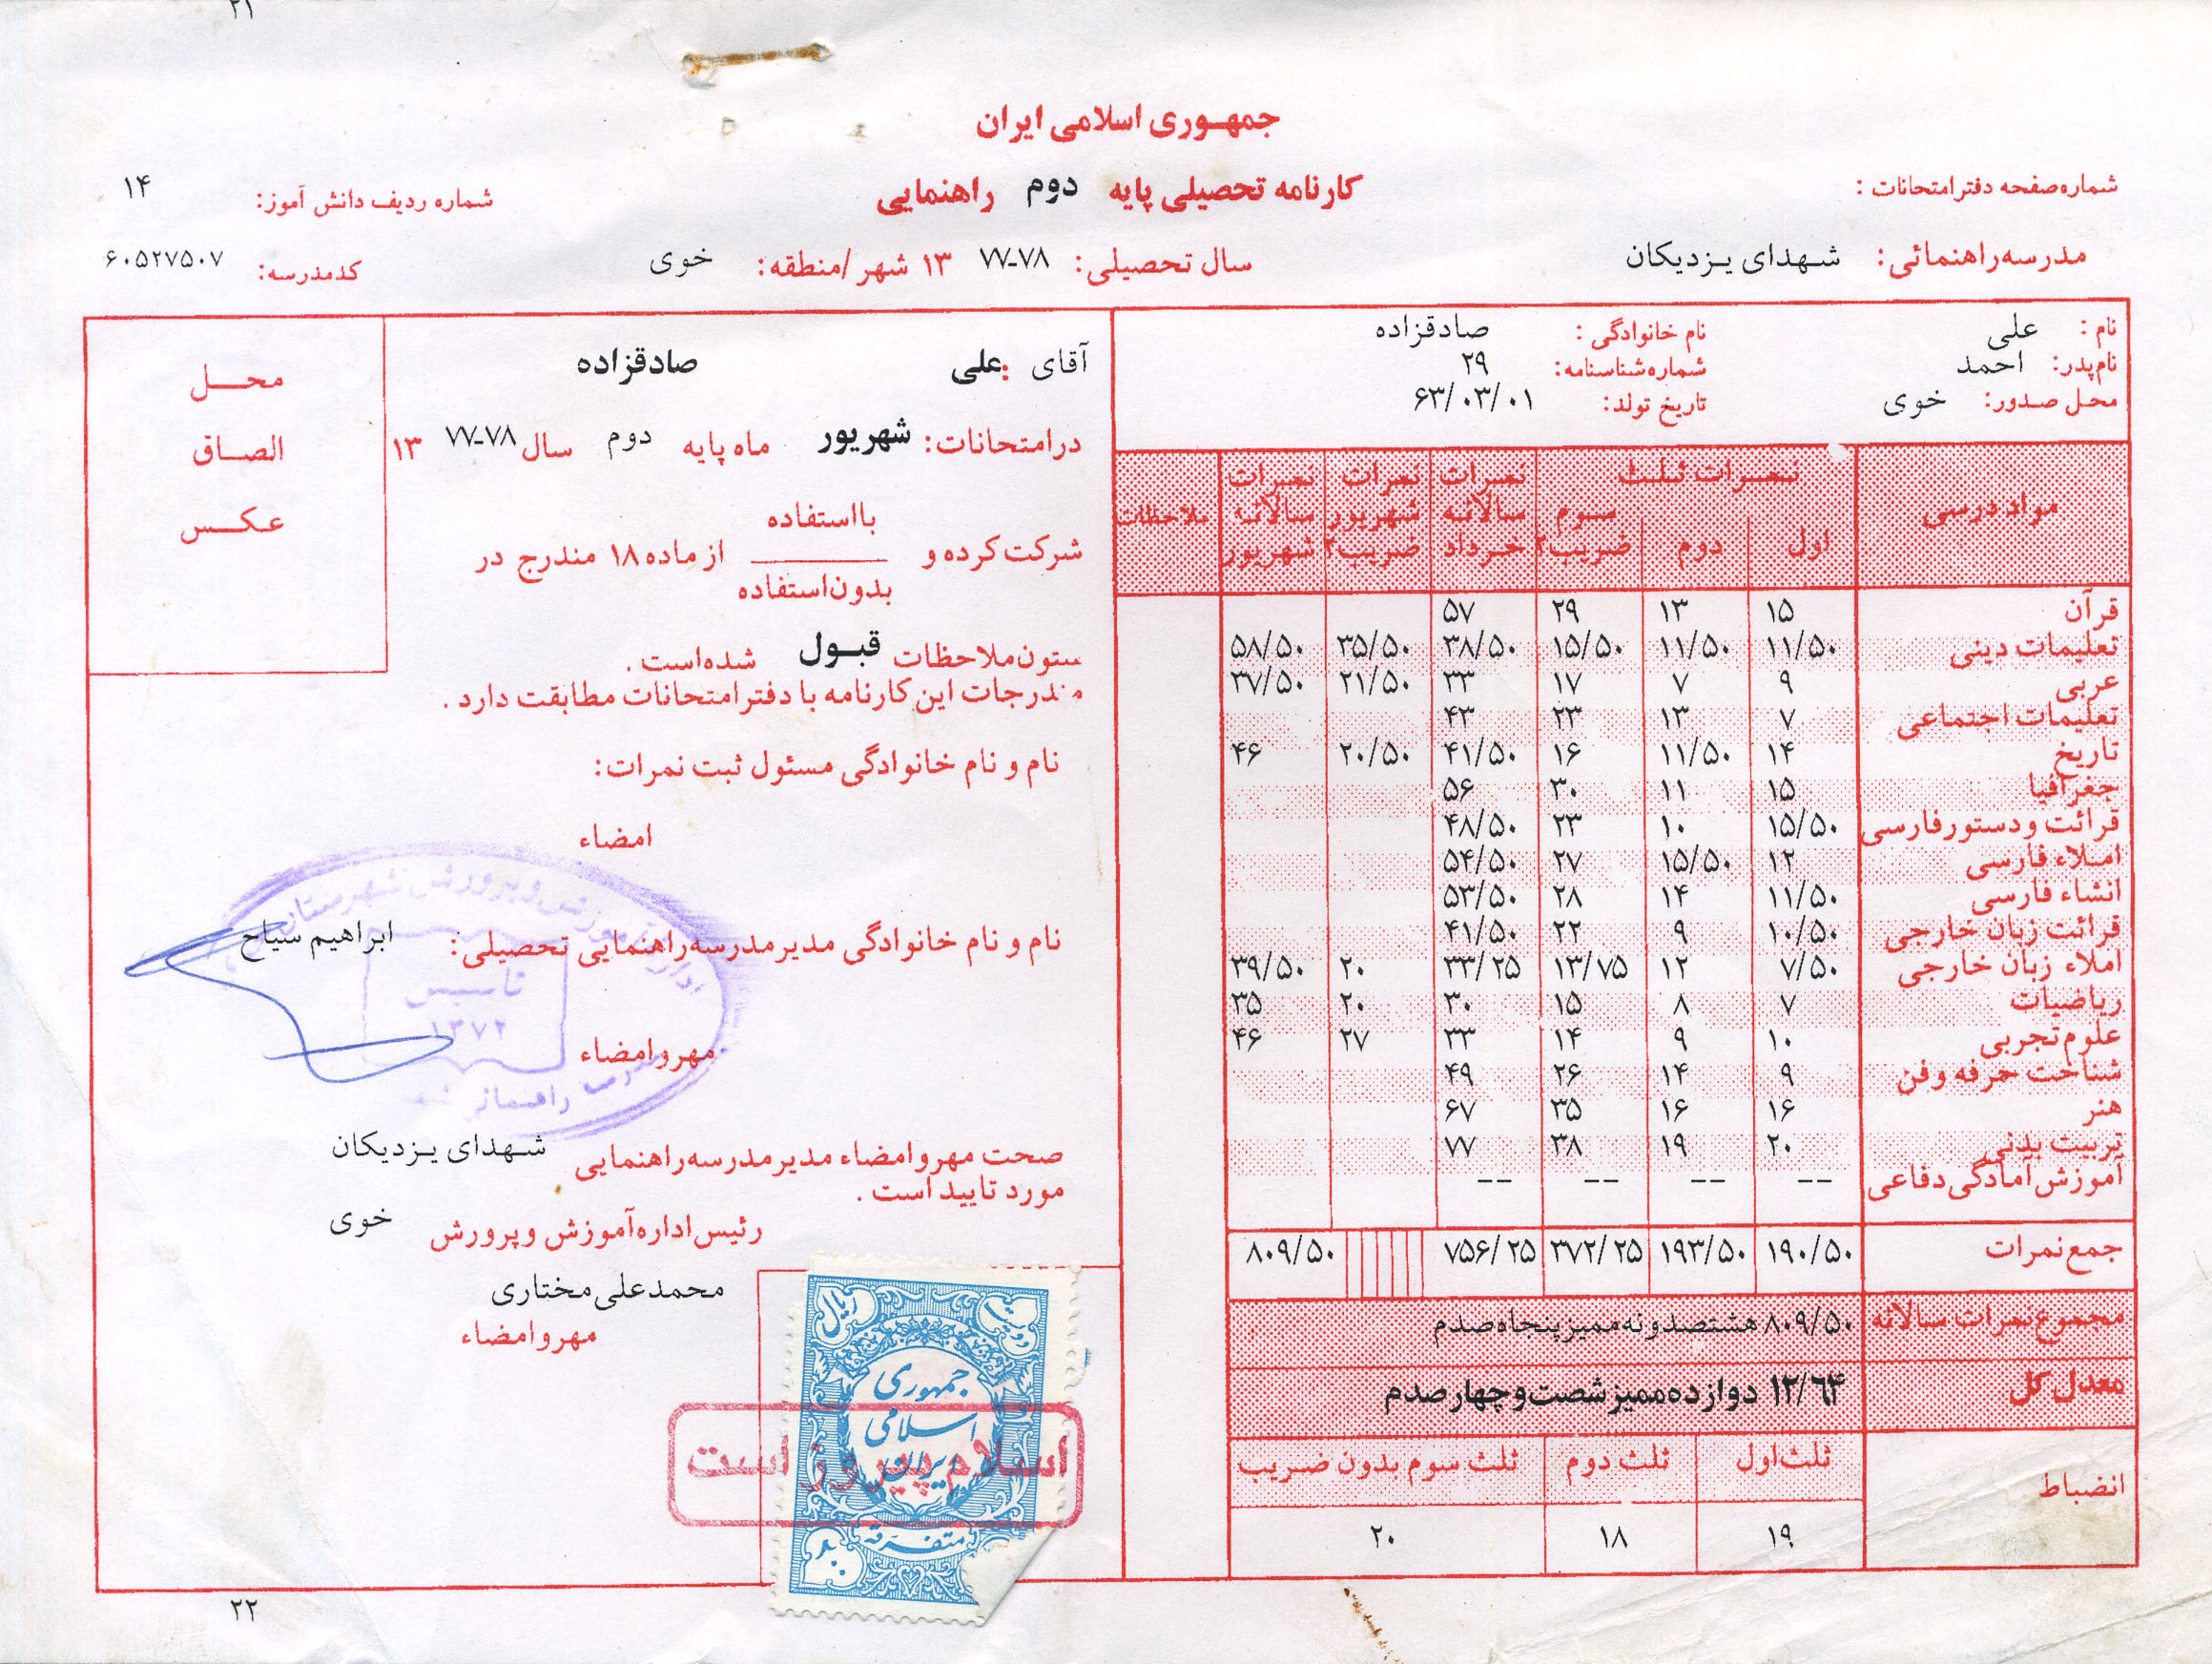 ۲۱
جمهوری اسلامی ایران
شماره صفحه دفتر امتحانات :
کارنامه تحصیلی پایه دوم راهنمایی
شماره ردیف دانش آموز: ۱۴
مدرسه راهنمائی: شهدای یزدیکان
سال تحصیلی: ۷۷-۷۸ ۱۳ شهر/منطقه: خوی
کدمدرسه: ۶۰۵۲۷۵۰۷
نام : علی نام خانوادگی : صادقزاده
نام پدر: احمد شماره شناسنامه: ۲۹
محل صدور: خوی تاریخ تولد: ۶۳/۰۳/۰۱
مواد درسی نمرات ثلث اول دوم سوم ضریب۲ نمرات سالانه خرداد نمرات شهریور ضریب۲ نمرات سالانه شهریور ملاحظات
قرآن ۱۵ ۱۳ ۲۹ ۵۷
تعلیمات دینی ۱۱/۵۰ ۱۱/۵۰ ۱۵/۵۰ ۳۸/۵۰ ۳۵/۵۰ ۵۸/۵۰
عربی ۹ ۷ ۱۷ ۳۳ ۲۱/۵۰ ۳۷/۵۰
تعلیمات اجتماعی ۷ ۱۳ ۲۳ ۴۳
تاریخ ۱۴ ۱۱/۵۰ ۱۶ ۴۱/۵۰ ۲۰/۵۰ ۴۶
جغرافیا ۱۵ ۱۱ ۳۰ ۵۶
قرائت و دستور فارسی ۱۵/۵۰ ۱۰ ۲۳ ۴۸/۵۰
املاء فارسی ۱۲ ۱۵/۵۰ ۲۷ ۵۴/۵۰
انشاء فارسی ۱۱/۵۰ ۱۴ ۲۸ ۵۳/۵۰
قرائت زبان خارجی ۱۰/۵۰ ۹ ۲۲ ۴۱/۵۰
املاء زبان خارجی ۷/۵۰ ۱۲ ۱۳/۷۵ ۳۳/۲۵ ۲۰ ۳۹/۵۰
ریاضیات ۷ ۸ ۱۵ ۳۰ ۲۰ ۳۵
علوم تجربی ۱۰ ۹ ۱۴ ۳۳ ۲۷ ۴۶
شناخت حرفه و فن ۹ ۱۴ ۲۶ ۴۹
هنر ۱۶ ۱۶ ۳۵ ۶۷
تربیت بدنی ۲۰ ۱۹ ۳۸ ۷۷
آموزش آمادگی دفاعی -- -- -- --
جمع نمرات ۱۹۰/۵۰ ۱۹۳/۵۰ ۳۷۲/۲۵ ۷۵۶/۲۵ ۸۰۹/۵۰
مجموع نمرات سالانه ۸۰۹/۵۰ هشتصدونه ممیز پنجاه صدم
معدل کل ۱۲/۶۴ دوازده ممیز شصت و چهار صدم
انضباط
ثلث اول ثلث دوم ثلث سوم بدون ضریب
۱۹ ۱۸ ۲۰
آقای :علی صادقزاده
در امتحانات: شهریور ماه پایه دوم سال ۷۷-۷۸ ۱۳
با استفاده
شرکت کرده و از ماده ۱۸ مندرج در
بدون استفاده
ستون ملاحظات قبول شده است .
مندرجات این کارنامه با دفتر امتحانات مطابقت دارد .
نام و نام خانوادگی مسئول ثبت نمرات:
امضاء
نام و نام خانوادگی مدیر مدرسه راهنمایی تحصیلی: ابراهیم سیاح
مهر و امضاء
اداره آموزش و پرورش شهرستان
تاسیس
۱۳۷۲
مدرسه راهنمائی
صحت مهر و امضاء مدیر مدرسه راهنمایی شهدای یزدیکان
مورد تایید است .
رئیس اداره آموزش و پرورش خوی
محمدعلی مختاری
مهر و امضاء
محل
الصاق
عکس
دویست ریال
جمهوری
اسلامی
ایران
متفرقه
اسلام پیروز است
۲۲